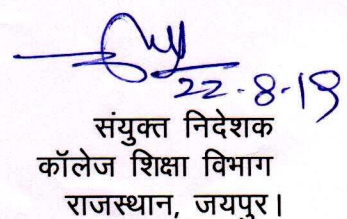 22-8-19
संयुक्त निदेशक
कॉलेज शिक्षा विभाग
राजस्थान, जयपुर।